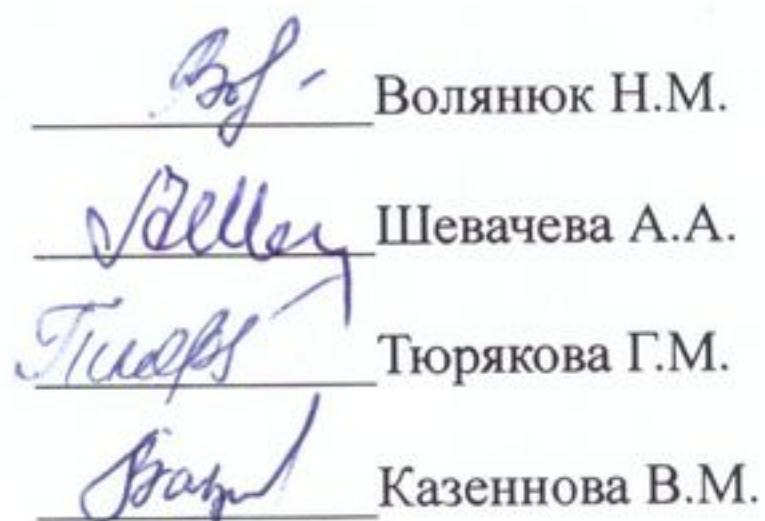 Волянюк Н.М.
Шевачева А.А.
Тюрякова Г.М.
Казеннова В.М.